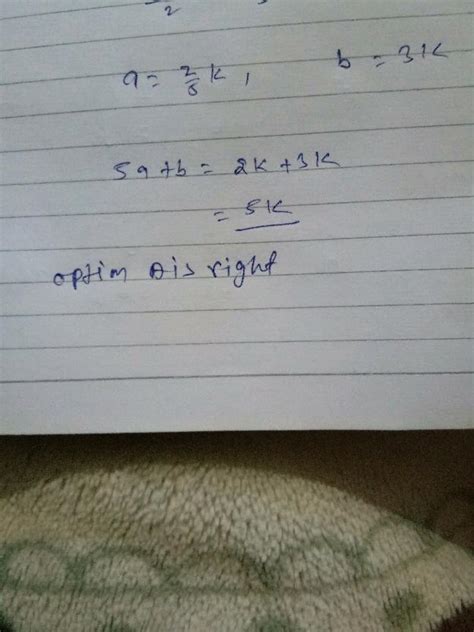 2
a = 2/5 k, b = 3k
5a+b = 2k + 3k
= 5k
optim A is right